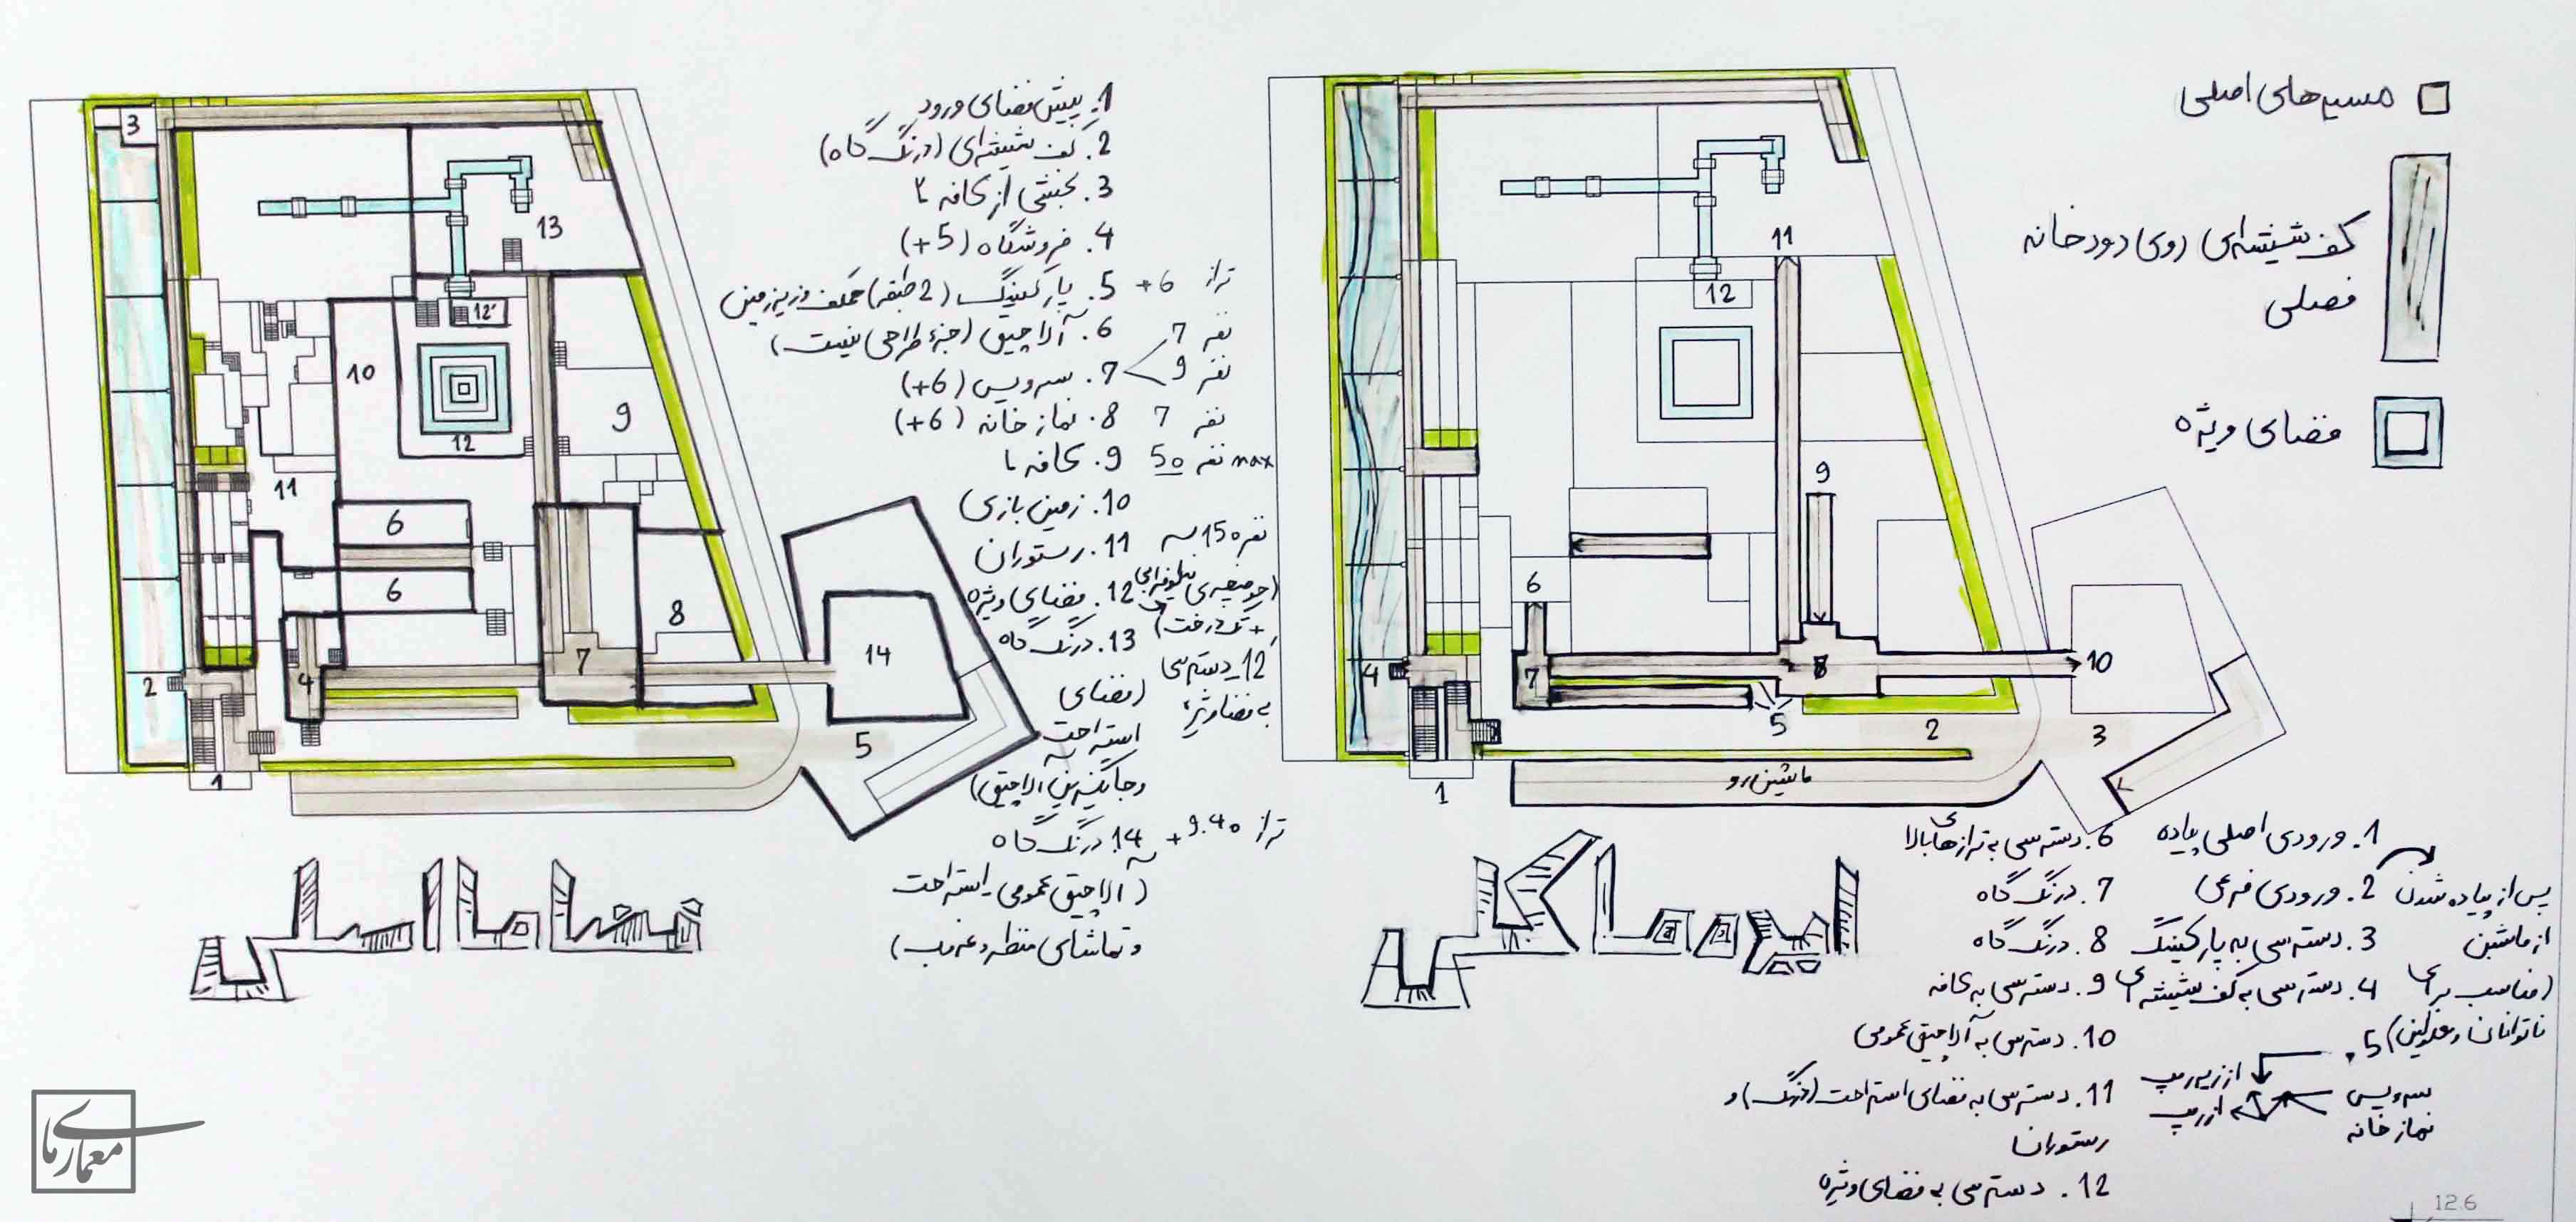 1. پیش فضای ورود
2. کف شیشه‌ای (درنگ گاه)
3. بخشی از کافه ۲
4. فروشگاه (+5)
5. پارکینگ (2 طبقه) همکف و زیرزمین
تراز +6
6. آلاچیق (جزء طراحی نیست)
7. سرویس (+6)
7 نفر
9 نفر
8. نماز خانه (+6)
7 نفر
9. کافه ۱
50 نفر max
10. زمین بازی
11. رستوران
150 نفر
12. فضای ویژه
+ تک درخت)
13. درنگ گاه
(فضای
استراحت
و جایگزین آلاچیق)
12. دسترسی
به فضا ویژه
14. درنگ گاه
تراز +9.40
(آلاچیق عمومی، استراحت
و تماشای منظر و غروب)
3
13
12'
10
9
12
11
6
6
8
7
4
14
2
5
1
مسیرهای اصلی
کف شیشه‌ای روی رودخانه
فصلی
فضای ویژه
11
12
9
6
7
8
10
4
5
2
3
1
ماشین رو
1. ورودی اصلی پیاده
2. ورودی فرعی
پس از پیاده شدن
از ماشین
(مناسب برای
ناتوانان و معلولین)
3. دسترسی به پارکینگ
4. دسترسی به کف شیشه ای
5.
از زیر رمپ
از رمپ
سرویس
نماز خانه
6. دسترسی به ترازهای بالا
7. درنگ گاه
8. درنگ گاه
9. دسترسی به کافه
10. دسترسی به آلاچیق عمومی
11. دسترسی به فضای استراحت (درنگ) و
رستوران
12. دسترسی به فضای ویژه
معماری‌ما
12.6